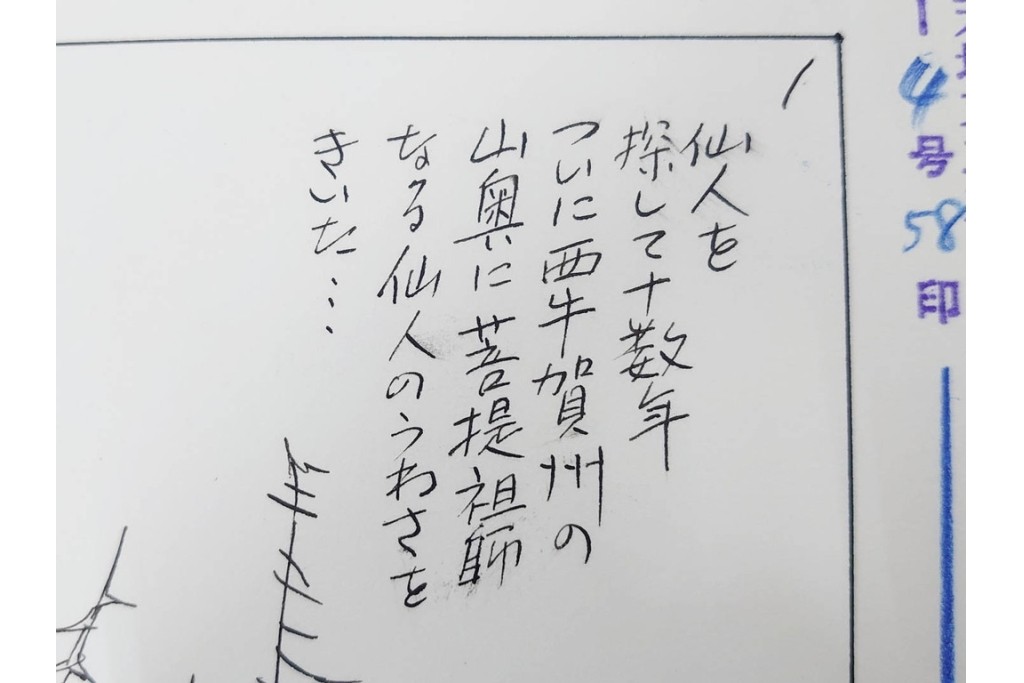 4号58印
1
仙人を
探して十数年
ついに西牛賀州の
山奥に菩提祖師
なる仙人のうわさを
きいた…